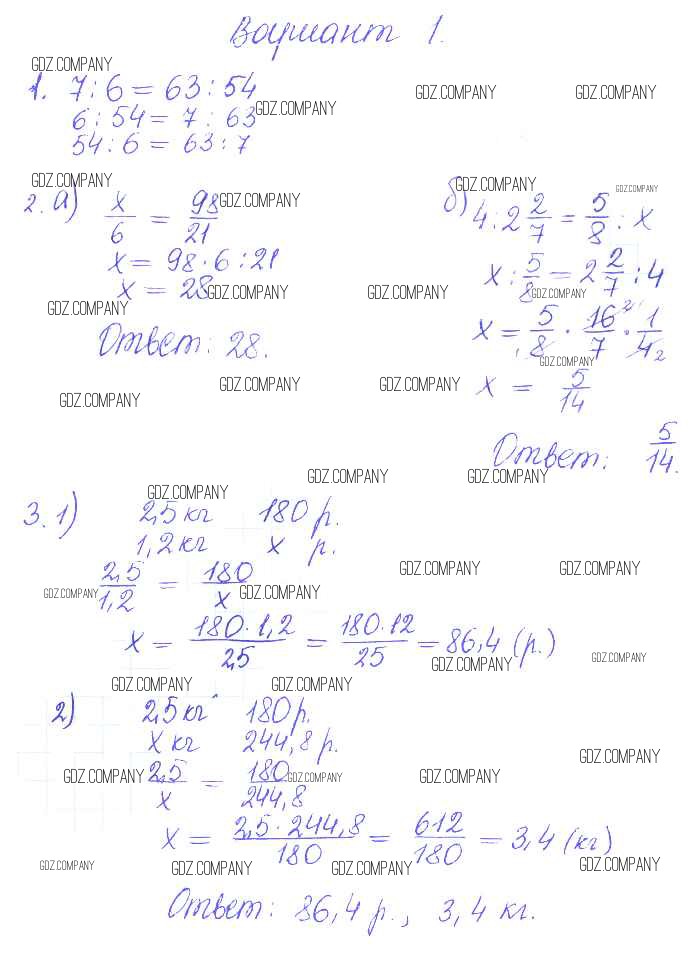 Вариант 1.
GDZ.COMPANY
1. 7 : 6 = 63 : 54
GDZ.COMPANY GDZ.COMPANY
6 : 54 = 7 : 63
GDZ.COMPANY
54 : 6 = 63 : 7
GDZ.COMPANY GDZ.COMPANY GDZ.COMPANY
2. а) x/6 = 98/21
GDZ.COMPANY
x = 98 · 6 : 21
x = 28
GDZ.COMPANY GDZ.COMPANY
GDZ.COMPANY
Ответ: 28.
б) 4 : 2 2/7 = 5/8 : x
x : 5/8 = 2 2/7 : 4
GDZ.COMPANY
x = 5/8 · 16/7 · 1/4
GDZ.COMPANY
x = 5/14
GDZ.COMPANY GDZ.COMPANY
GDZ.COMPANY
Ответ: 5/14.
GDZ.COMPANY GDZ.COMPANY
GDZ.COMPANY
3. 1) 2,5 кг 180 р.
1,2 кг x р.
GDZ.COMPANY GDZ.COMPANY
2,5/1,2 = 180/x
GDZ.COMPANY GDZ.COMPANY
x = 180 · 1,2/2,5 = 180 · 12/25 = 86,4 (р.)
GDZ.COMPANY GDZ.COMPANY
GDZ.COMPANY GDZ.COMPANY
2) 2,5 кг 180 р.
x кг 244,8 р.
GDZ.COMPANY
2,5/x = 180/244,8
GDZ.COMPANY GDZ.COMPANY GDZ.COMPANY
x = 2,5 · 244,8/180 = 612/180 = 3,4 (кг)
GDZ.COMPANY GDZ.COMPANY GDZ.COMPANY GDZ.COMPANY
Ответ: 86,4 р., 3,4 кг.